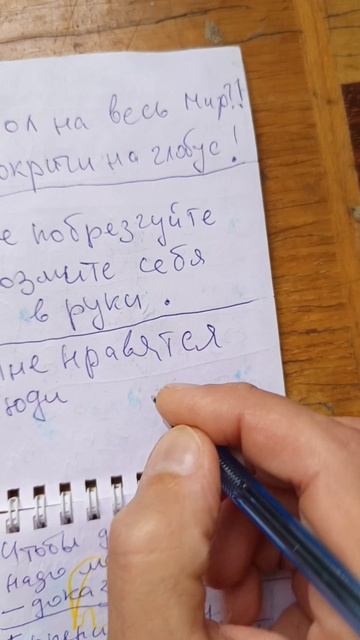 ол на весь мир?!
окричи на глобус!
е побрезгуйте
озмите себя
в руки.
мне нравятся
юди
Чтобы д
надо м
– доказ